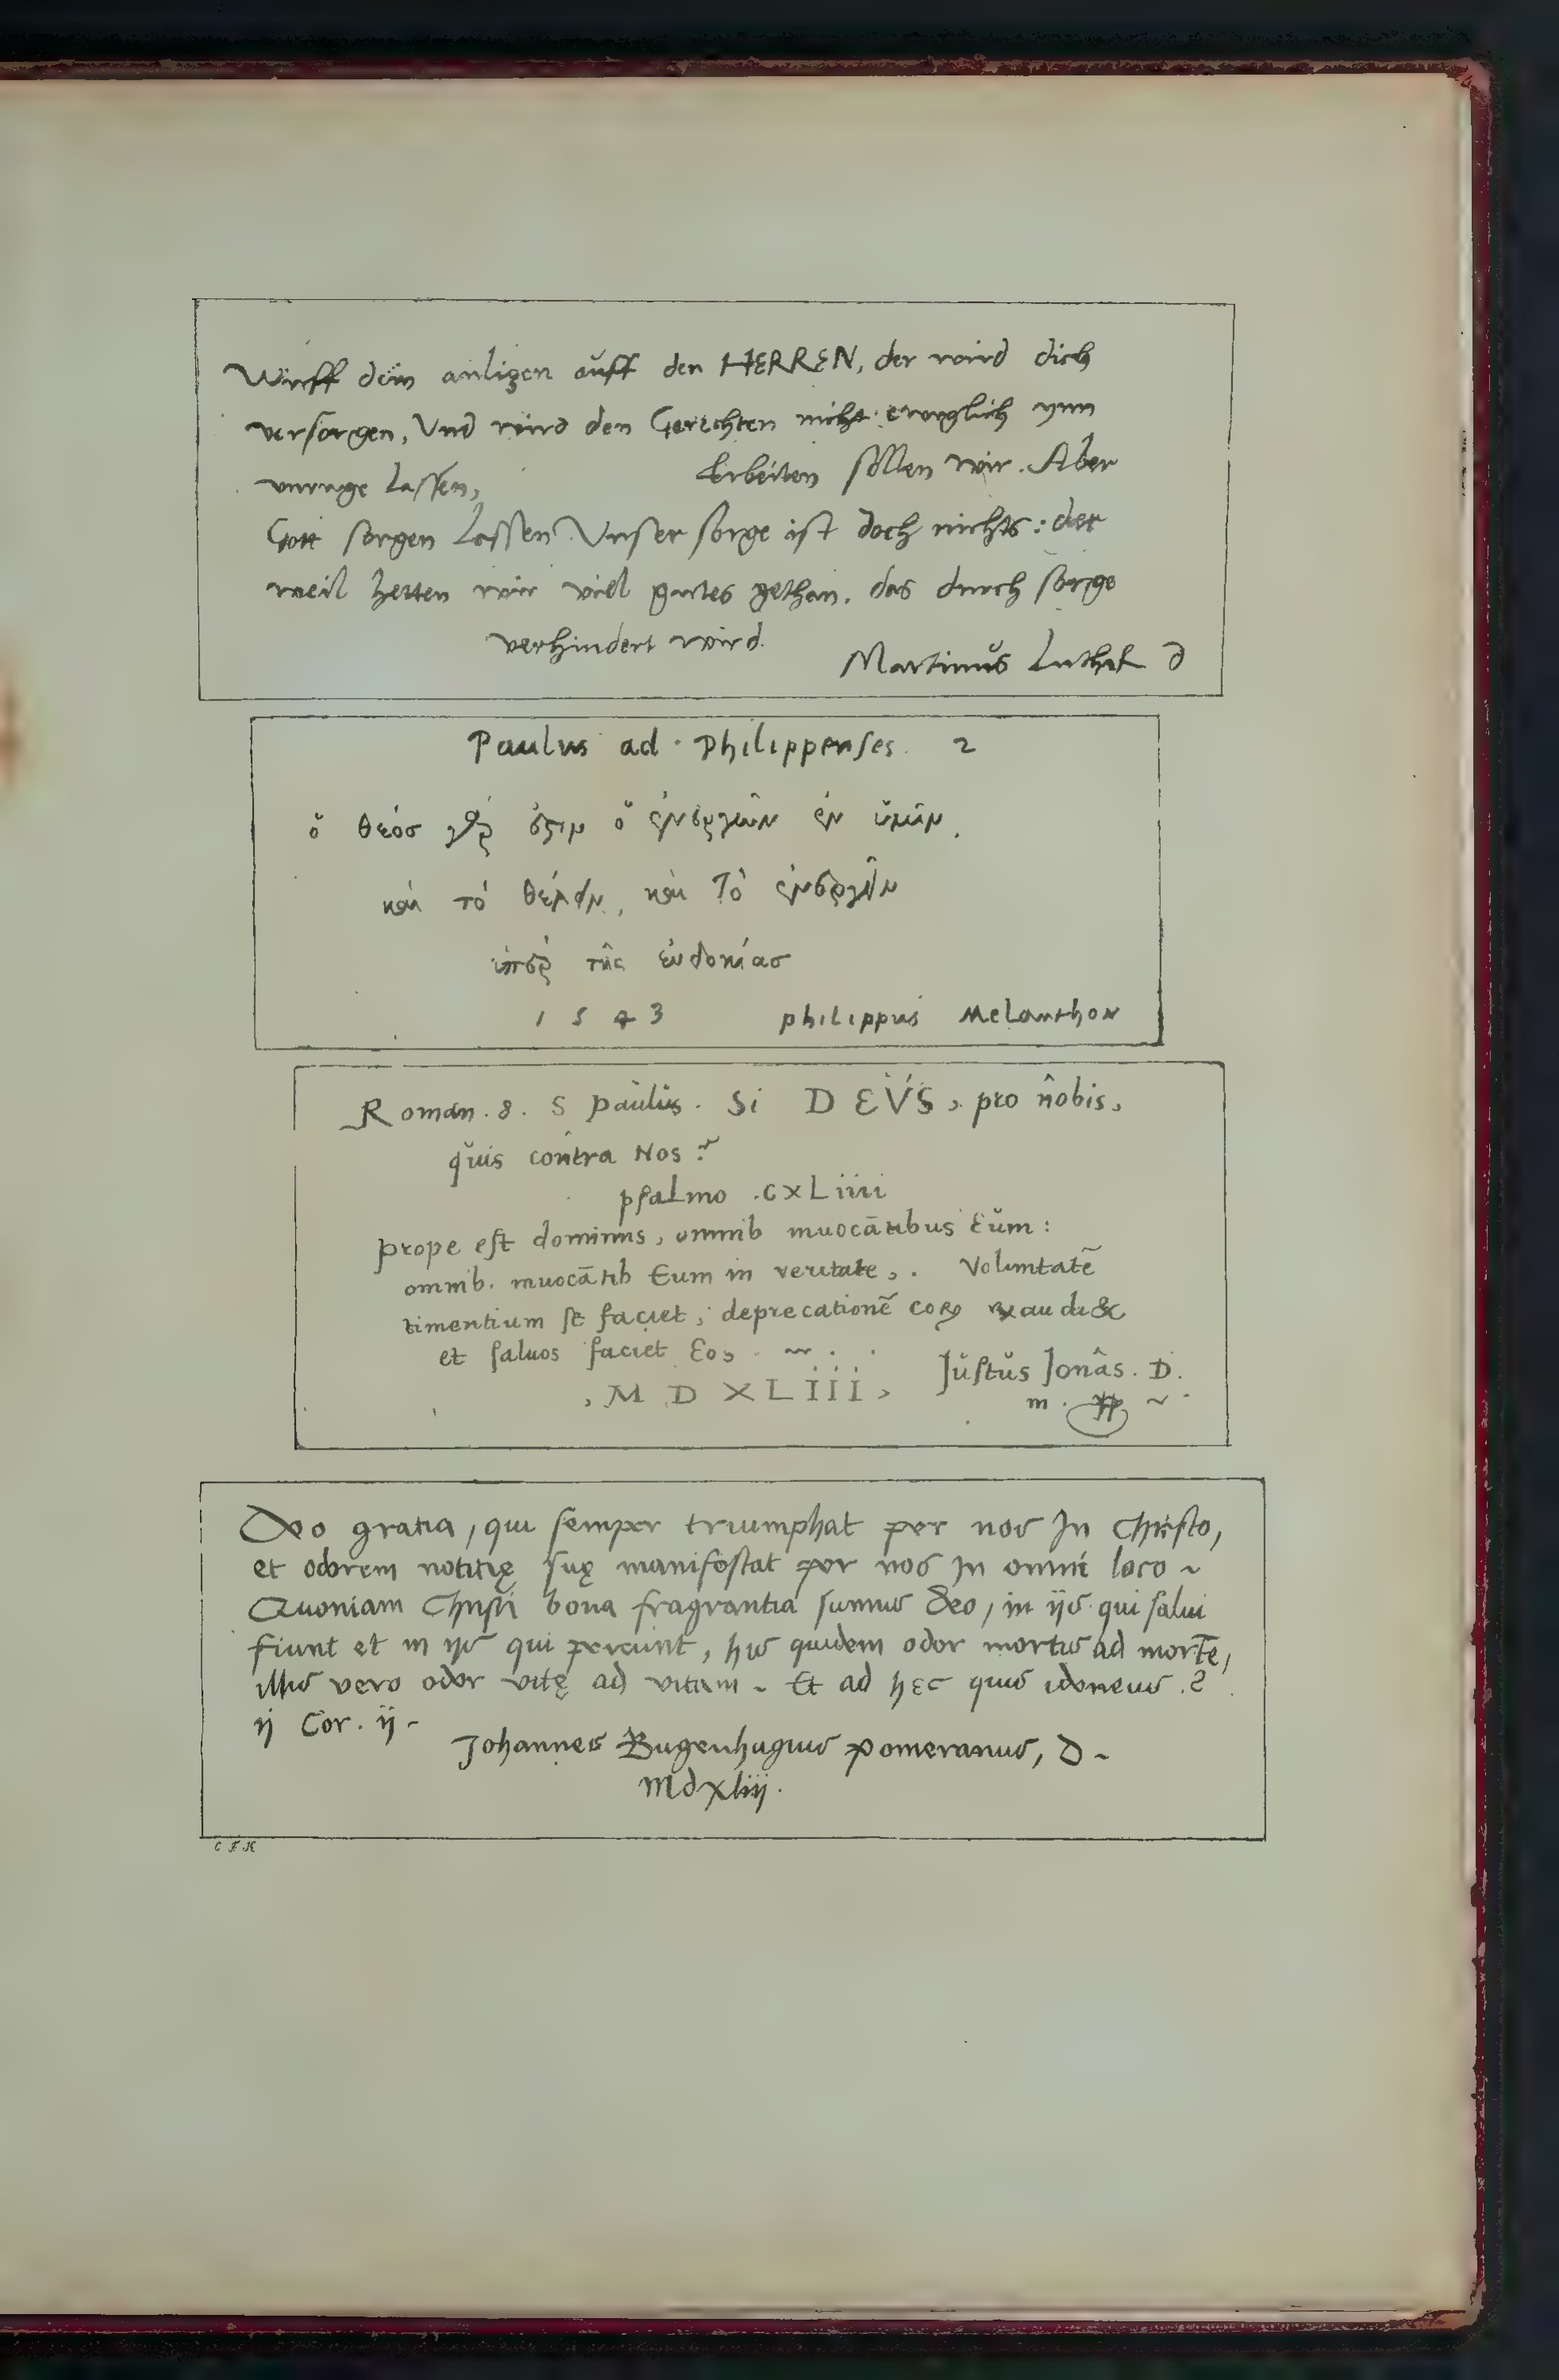 Wirff dein anligen auff den HERREN, der wird dich
versorgen, Und wird den Gerechten nicht ewiglich ynn
unruge lassen,
Erbeiten sollen wir. Aber
Gott sorgen lassen Unser sorge ist doch nichts: der
weil hetten wir viel gutes gethan, das durch sorge
verhindert wird.
Martinus Luther D
Paulus ad philippenses. 2
ὁ θεόσ γάρ ἐστιν ὁ ἐνεργῶν ἐν ὑμῖν,
καὶ τὸ θέλειν, καὶ τὸ ἐνεργεῖν
ὑπὲρ τῆς εὐδοκίασ
1543 philippus Melanthon
Roman. 8. S paulus. Si DEUS, pro nobis,
quis contra Nos?
psalmo .CXLiiii
prope est dominus, omnib invocātibus Eum:
omnib. invocātib Eum in veritate,. Voluntatē
timentium se faciet, deprecationē eoꝝ exaudi&
et salvos faciet Eos
, M D XL III, Justus Jonas. D.
m.
Deo gratia, qui semper triumphat per nos In Christo,
et odorem notitię suę manifestat per nos In omni loco ~
Quoniam Christi bona fragrantia sumus Deo, in ijs qui salui
fiunt et in ijs qui pereunt, his quidem odor mortis ad mortē,
illis vero odor vitę ad vitam ~ Et ad hęc quis idoneus.?
ij Cor. ij-
Johannes Bugenhagius pomeranus, D ~
Mdxliij.
C F K